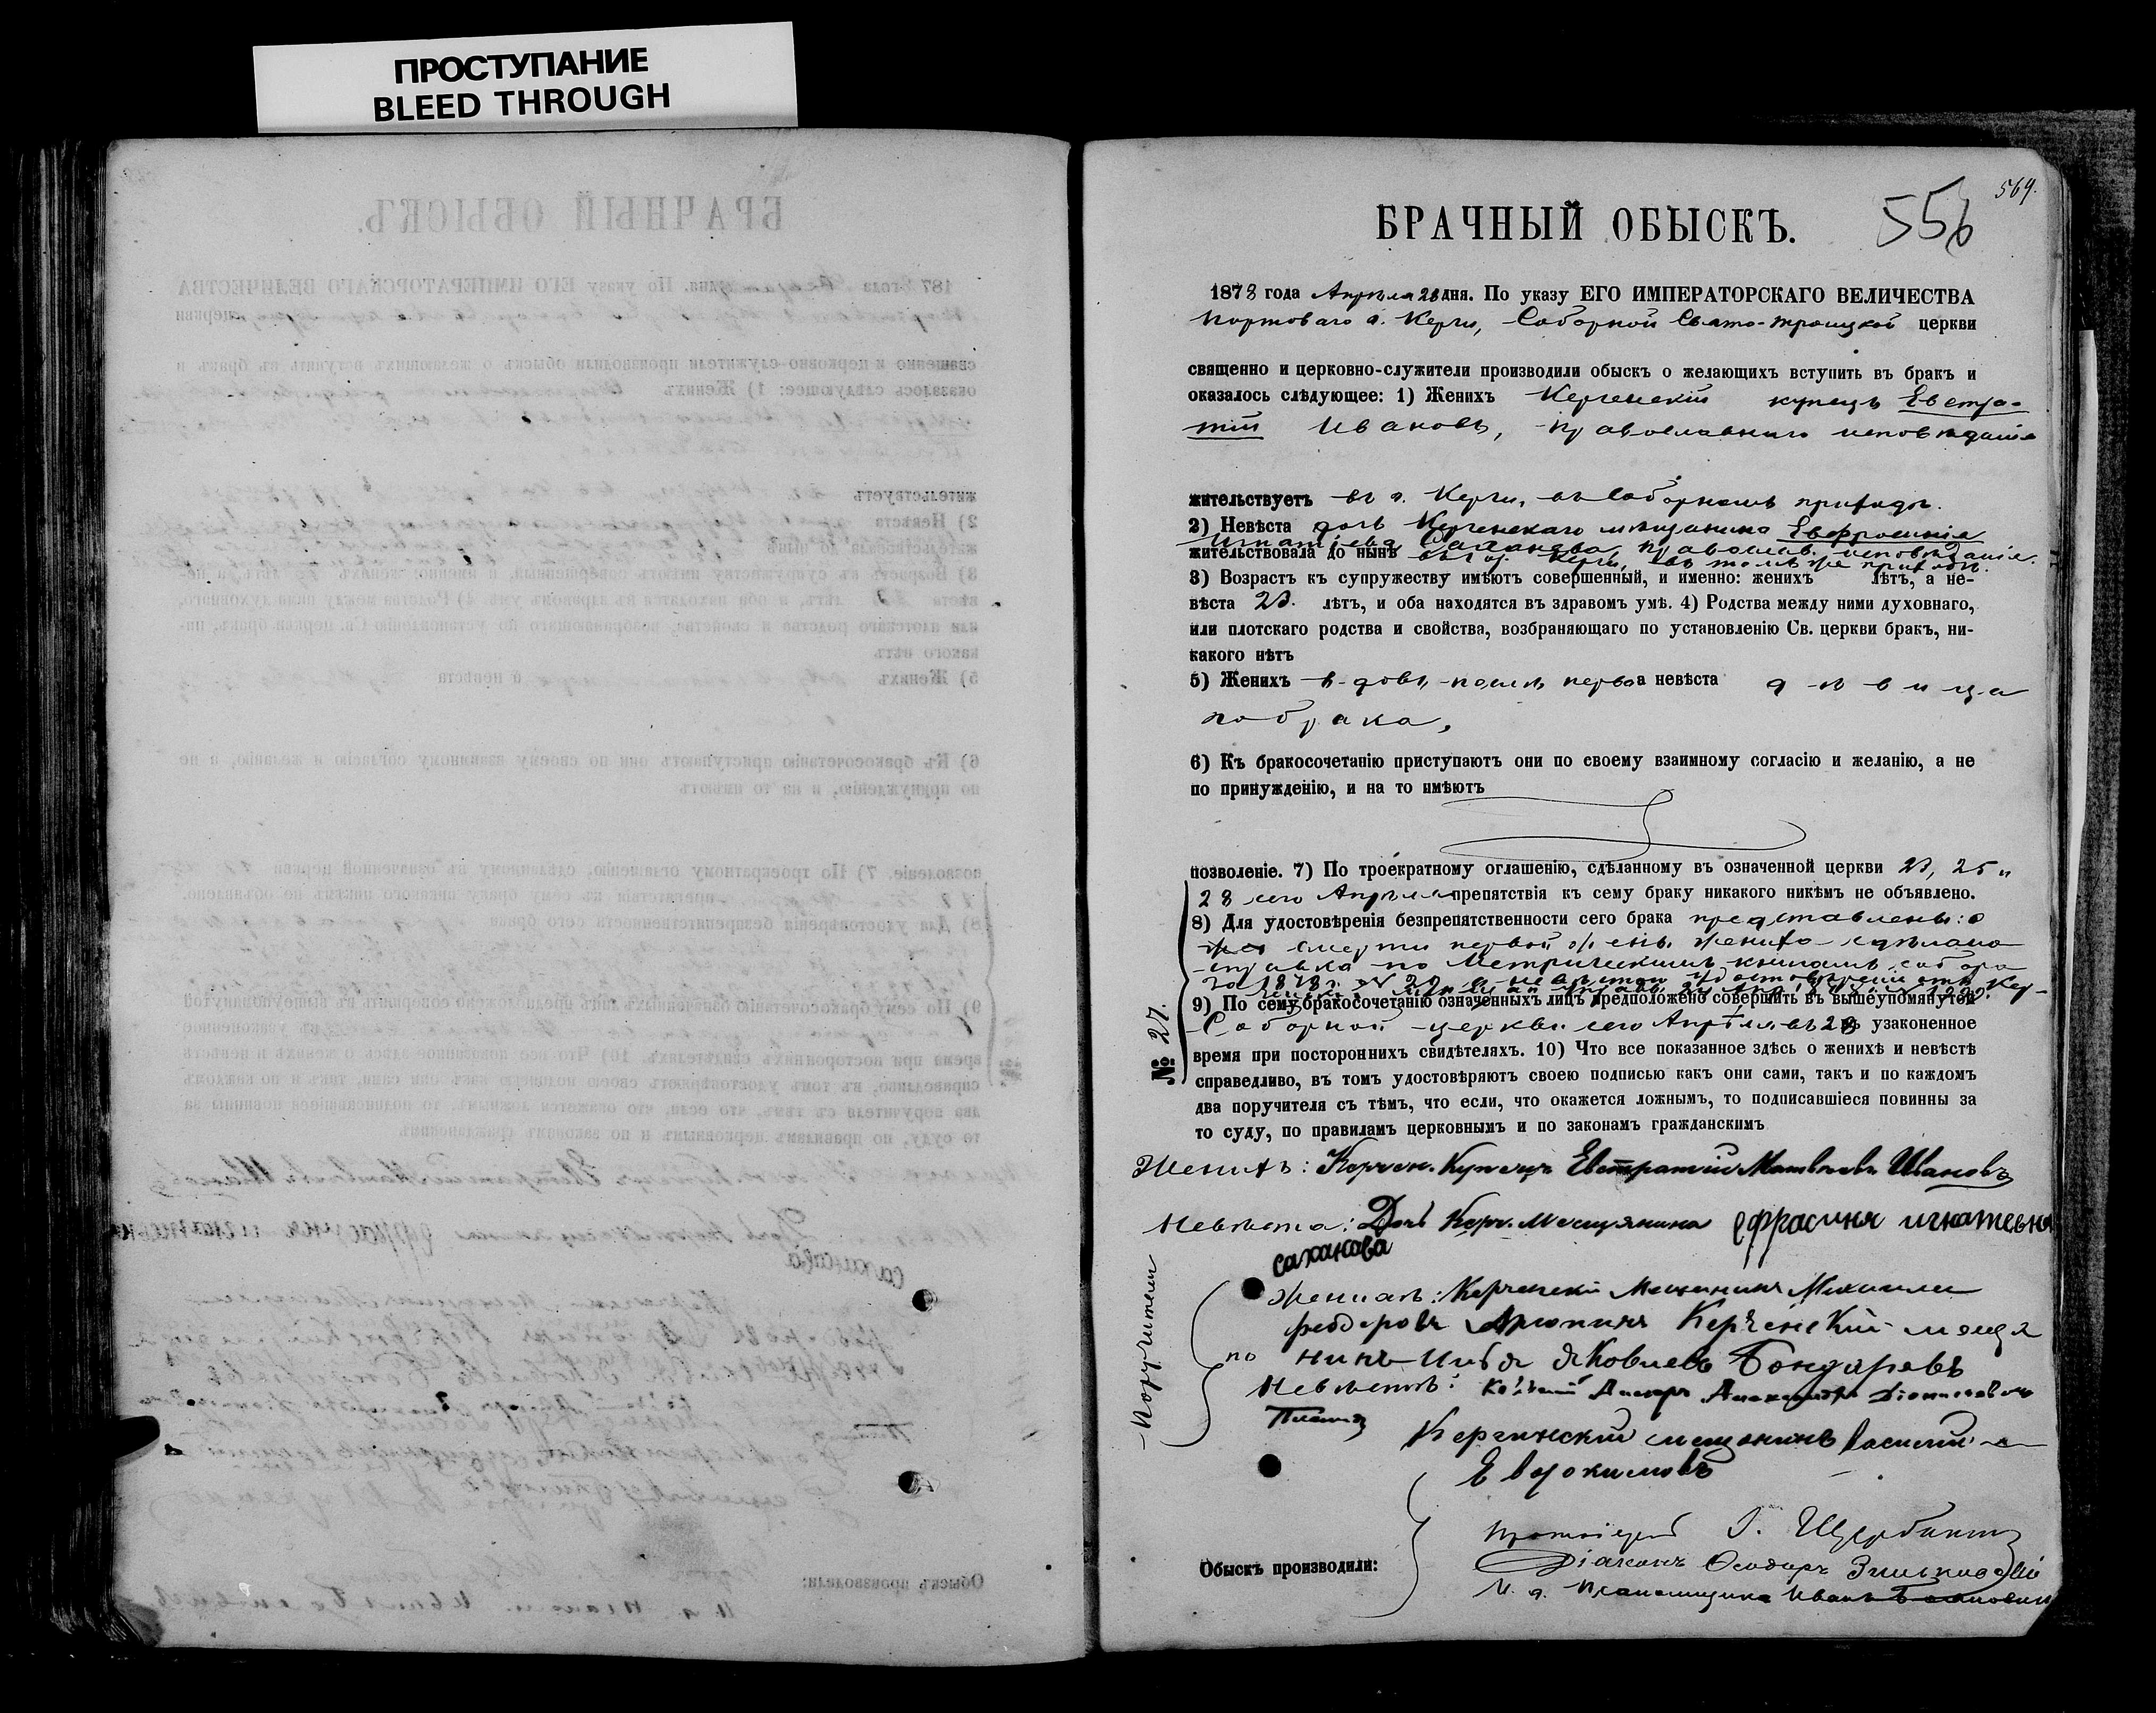 ПРОСТУПАНИЕ
BLEED THROUGH
564.
556
БРАЧНЫЙ ОБЫСКЪ.
1878 года Апрѣля 28 дня. По указу ЕГО ИМПЕРАТОРСКАГО ВЕЛИЧЕСТВА
Портоваго г. Керчи, Соборной Свято-Троицкой церкви
священно и церковно-служители производили обыскъ о желающихъ вступить въ бракъ и
оказалось слѣдующее: 1) Женихъ Керченскій купецъ Евстра-
тій Ивановъ, православнаго исповѣданія
жительствуетъ въ г. Керчи, въ Соборномъ приходѣ.
2) Невѣста дочь Керченскаго мѣщанина Евфросинія
Игнатіева Саханова, православ. исповѣданія.
жительствовала до нынѣ въ гор. Керчи, въ томъ же приходѣ.
3) Возрастъ къ супружеству имѣютъ совершенный, и именно: женихъ лѣтъ, а не-
вѣста 23. лѣтъ, и оба находятся въ здравомъ умѣ. 4) Родства между ними духовнаго,
или плотскаго родства и свойства, возбраняющаго по установленію Св. церкви бракъ, ни-
какого нѣтъ
5) Женихъ вдовъ послѣ перво а невѣста дѣвица
го брака,
6) Къ бракосочетанію приступаютъ они по своему взаимному согласію и желанію, а не
по принужденію, и на то имѣютъ
позволеніе. 7) По троекратному оглашенію, сдѣланному въ означенной церкви 23, 25 и
28 сего Апрѣля препятствія къ сему браку никакого никѣмъ не объявлено.
8) Для удостовѣренія безпрепятственности сего брака представлены: о
смерти первой жены жениха сдѣлана
справка по Метрическимъ книгамъ собора
за 1878 г. № 20 а невѣстой удостовѣреніе отъ Кер-
9) По сему бракосочетанію означенныхъ лицъ предположено совершить въ вышеупомянутой
Соборной церкви сего Апрѣля въ 28 узаконенное
№ 27.
время при постороннихъ свидѣтеляхъ. 10) Что все показанное здѣсь о женихѣ и невѣстѣ
справедливо, въ томъ удостовѣряютъ своею подписью какъ они сами, такъ и по каждомъ
два поручителя съ тѣмъ, что если, что окажется ложнымъ, то подписавшіеся повинны за
то суду, по правиламъ церковнымъ и по законамъ гражданскимъ
Женихъ: Керчен. Купецъ Евстратій Матвѣевъ Ивановъ
Невѣста: Дочь Керч. Мещянина ефрасиня игнатевна
саханава
Поручители
по
Женихѣ: Керченскій Мещанинъ Михаилъ
Федоровъ Керченскій меща
нинъ Яковлевъ Бондаревъ
Невѣстѣ:
Керчинский мещанинъ Василий
Евдокимовъ
Обыскъ производили:
Протоіерей Г. Щербина
Діаконъ Ѳеодоръ
И. д. Псаломщика Иванъ